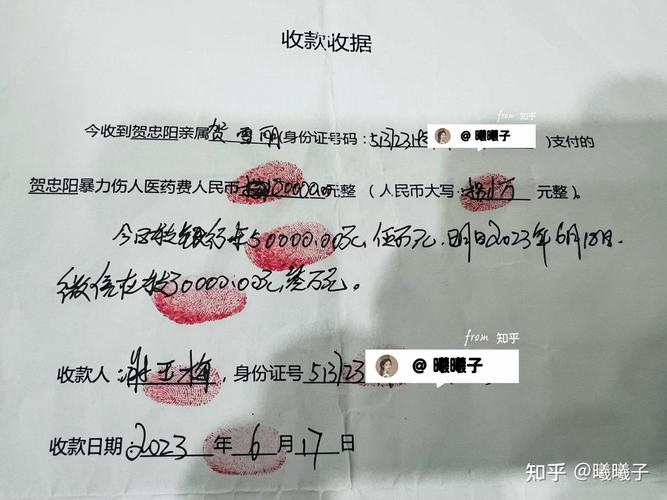 收款收据
from 知乎
今收到贺忠阳亲属贺雪丽(身份证号码：513123195 @ 曦曦子 )支付的
贺忠阳暴力伤人医药费人民币80000.00元整（人民币大写：捌万元整）。
今日转银行卡50000.00元，伍万元，明日2023年6月18日
微信在转30000.00元，叁万元。
from 知乎
收款人：王梅，身份证号513123 @ 曦曦子
收款日期：2023年6月17日
知乎 @曦曦子